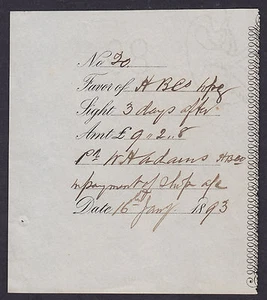 No 20
Favor of H B Co
Sight 3 days after
Amt £ 9 " 2 " 8
pr W H Adams H B Co
in payment of
Date 16th Jany 1893